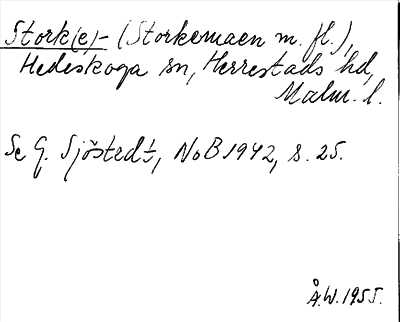 Stork(e)- (Storkemaen m. fl.),
Hedeskoga sn, Herrestads hd,
Malm. l.
Se G. Sjöstedt, NoB 1942, s. 25.
Å.W. 1955.